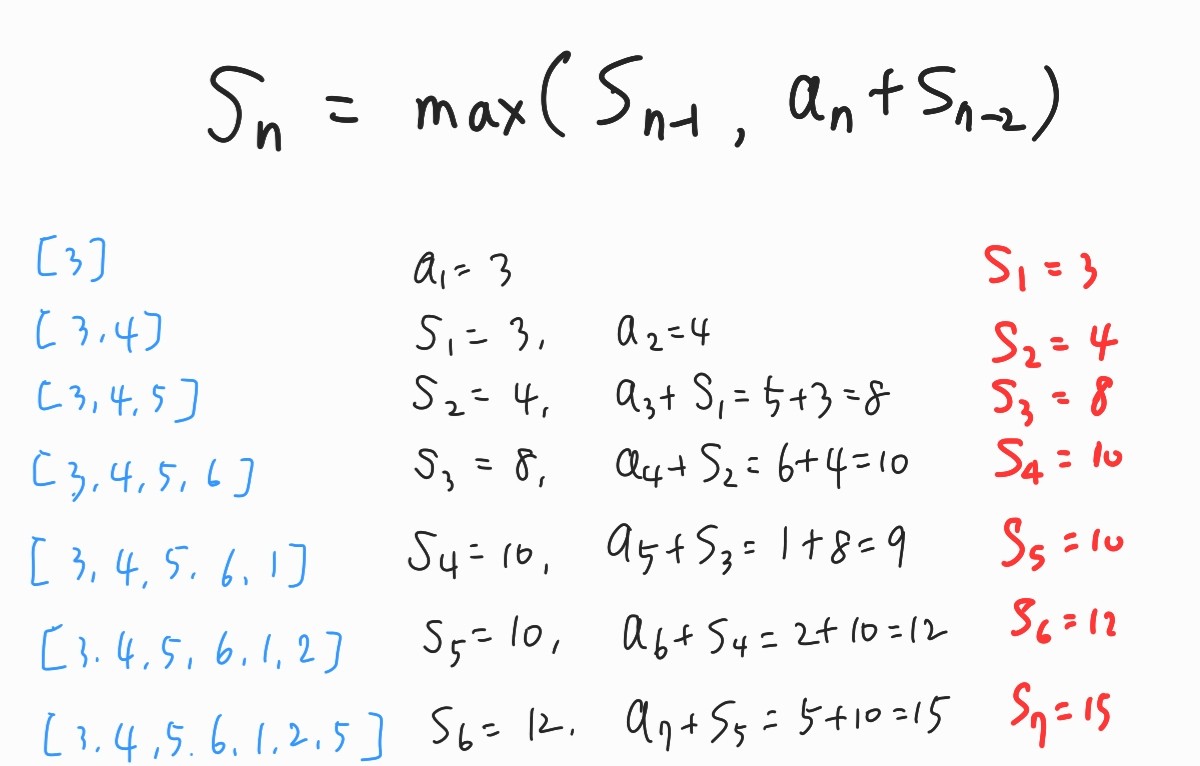 Sn = max(Sn-1, an+Sn-2)
[3] a1=3 S1=3
[3.4] S1=3, a2=4 S2=4
[3,4,5] S2=4, a3+S1=5+3=8 S3=8
[3,4,5,6] S3=8, a4+S2=6+4=10 S4=10
[3,4,5.6,1] S4=10, a5+S3=1+8=9 S5=10
[3.4,5,6,1,2] S5=10, a6+S4=2+10=12 S6=12
[3.4,5.6,1,2,5] S6=12. a7+S5=5+10=15 S7=15